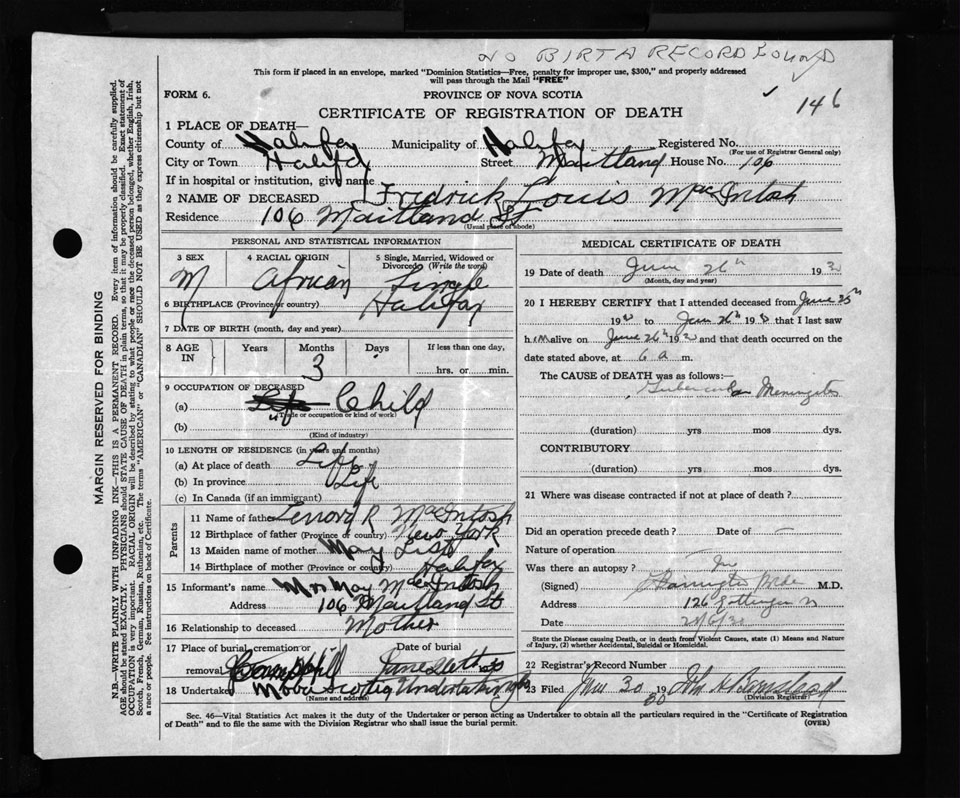 NO BIRTH RECORD FOUND
This form if placed in an envelope, marked "Dominion Statistics—Free, penalty for improper use, $300," and properly addressed
will pass through the Mail "FREE"
FORM 6.
PROVINCE OF NOVA SCOTIA
146
CERTIFICATE OF REGISTRATION OF DEATH
1 PLACE OF DEATH—
County of Halifax Municipality of Halifax Registered No.
(For use of Registrar General only)
City or Town Halifax Street Maitland House No. 106
If in hospital or institution, give name
2 NAME OF DECEASED Fredrick Louis MacIntosh
Residence 106 Maitland St
(Usual place of abode)
PERSONAL AND STATISTICAL INFORMATION
3 SEX 4 RACIAL ORIGIN 5 Single, Married, Widowed or
Divorced (Write the word)
M African Single
6 BIRTHPLACE (Province or country) Halifax
7 DATE OF BIRTH (month, day and year)
8 AGE IN Years Months Days If less than one day,
3
hrs. or min.
9 OCCUPATION OF DECEASED
(a) Child
(Trade or occupation or kind of work)
(b)
(Kind of industry)
10 LENGTH OF RESIDENCE (in years and months)
(a) At place of death Life
(b) In province Life
(c) In Canada (if an immigrant)
Parents
11 Name of father R MacIntosh
12 Birthplace of father (Province or country) New York
13 Maiden name of mother May
14 Birthplace of mother (Province or country) Halifax
15 Informant's name Mrs May McIntosh
Address 106 Maitland St
16 Relationship to deceased Mother
17 Place of burial, cremation or removal Date of burial
June
18 Undertaker Nova Scotia Undertaking Co
(Name and address)
MEDICAL CERTIFICATE OF DEATH
19 Date of death June 26th 193
(Month, day and year)
20 I HEREBY CERTIFY that I attended deceased from June 25th
19 to June 26th 19 that I last saw
h im alive on June 26th 19 and that death occurred on the
date stated above, at 6 a m.
The CAUSE of DEATH was as follows:—
Tubercular Meningitis
(duration) yrs mos dys.
CONTRIBUTORY
(duration) yrs mos dys.
21 Where was disease contracted if not at place of death?
Did an operation precede death? Date of
Nature of operation
Was there an autopsy?
(Signed) M.D.
Address 126 Gottingen
Date
State the Disease causing Death, or in death from Violent Causes, state (1) Means and Nature
of Injury, (2) whether Accidental, Suicidal or Homicidal.
22 Registrar's Record Number
23 Filed June 30 1930 John
(Division Registrar)
Sec. 46—Vital Statistics Act makes it the duty of the Undertaker or person acting as Undertaker to obtain all the particulars required in the "Certificate of Registration
of Death" and to file the same with the Division Registrar who shall issue the burial permit.
(OVER)
MARGIN RESERVED FOR BINDING
N.B.—WRITE PLAINLY WITH UNFADING INK—THIS IS A PERMANENT RECORD. Every item of information should be carefully supplied.
AGE should be stated EXACTLY. PHYSICIANS should STATE CAUSE OF DEATH in plain terms, so that it may be properly classified. Exact statement of
OCCUPATION is very important. RACIAL ORIGIN will be described by stating to what people or race the deceased person belonged, whether English, Irish,
Scotch, French, German, Russian, Ruthenian, etc. The terms "AMERICAN" or "CANADIAN" SHOULD NOT BE USED as they express citizenship but not
a race or people. See instructions on back of Certificate.